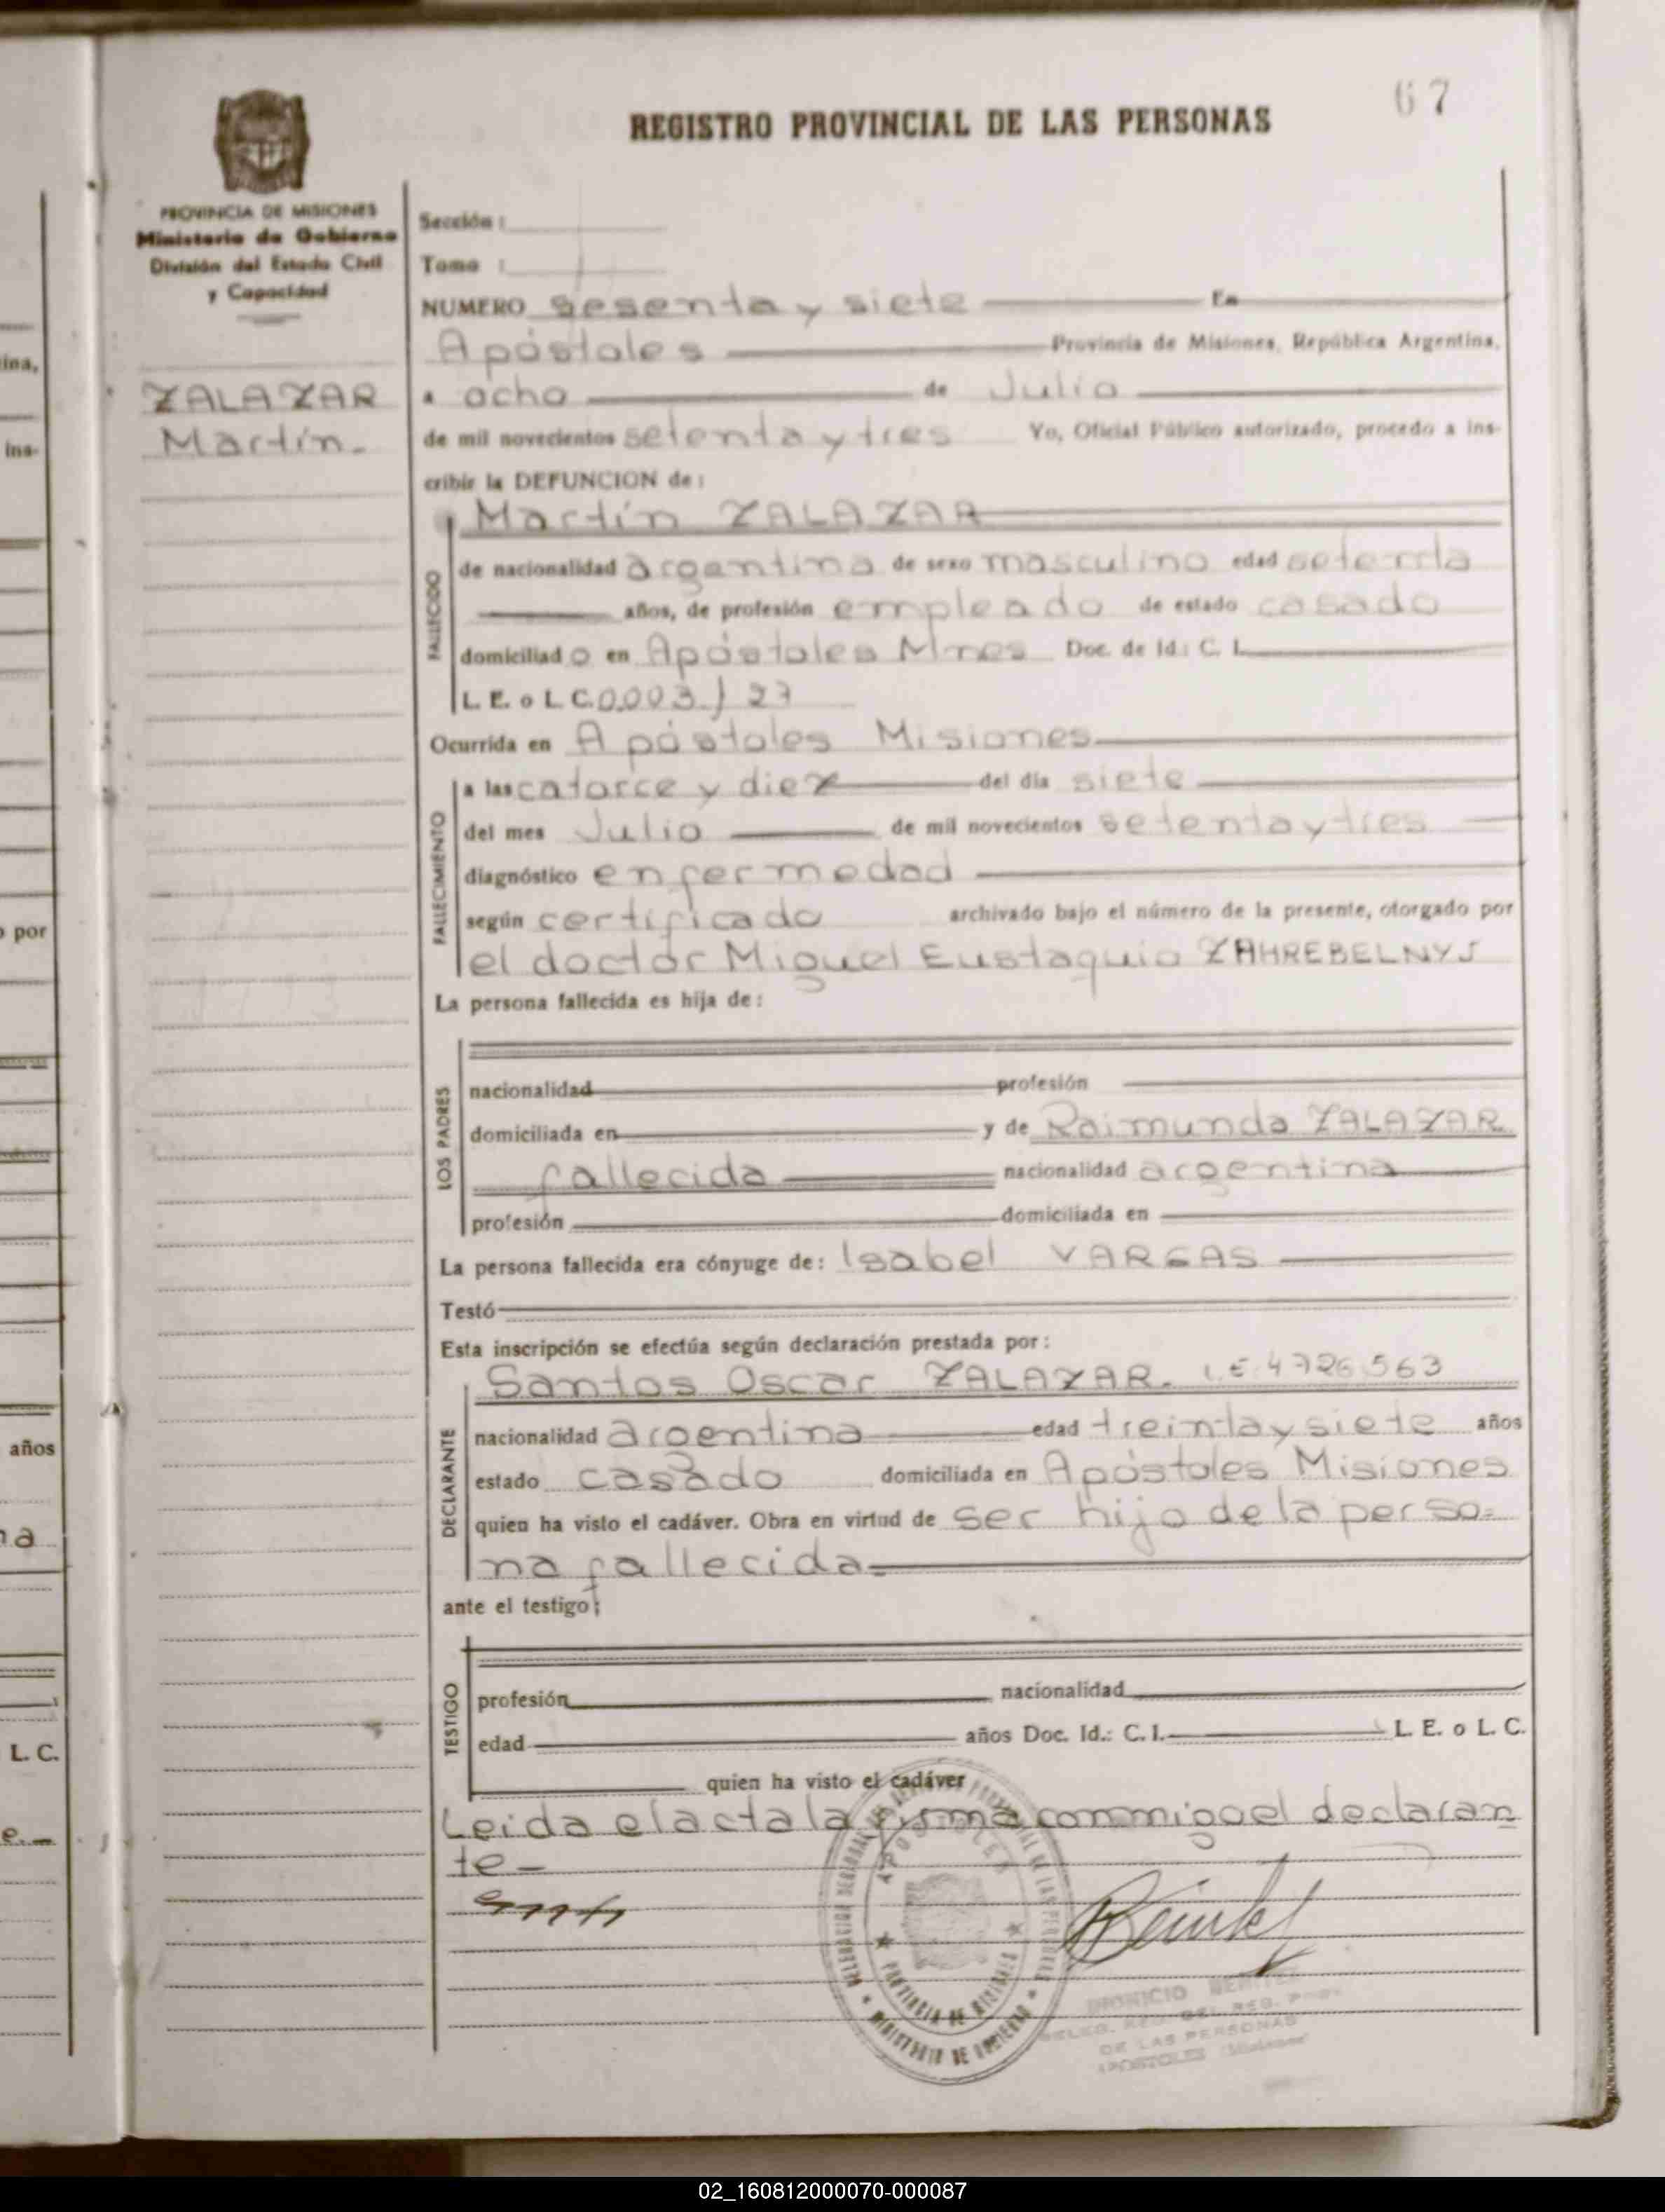 67
REGISTRO PROVINCIAL DE LAS PERSONAS
PROVINCIA DE MISIONES
Ministerio de Gobierno
División del Estado Civil
y Capacidad
ZALAZAR
Martín.
Sección:
Tomo :
NUMERO sesenta y siete En
Apóstoles Provincia de Misiones, República Argentina,
a ocho de Julio
de mil novecientos setenta y tres Yo, Oficial Público autorizado, procedo a ins-
cribir la DEFUNCION de:
Martín ZALAZAR
FALLECIDO
de nacionalidad argentina de sexo masculino edad setenta
años, de profesión empleado de estado casado
domiciliado en Apóstoles Mnes Doc. de Id.: C. I.
L. E. o L. C.
Ocurrida en Apóstoles Misiones
FALLECIMIENTO
a las catorce y diez del día siete
del mes Julio de mil novecientos setenta y tres
diagnóstico enfermedad
según certificado archivado bajo el número de la presente, otorgado por
el doctor Miguel Eustaquio ZAHREBELNYJ
La persona fallecida es hija de:
LOS PADRES
nacionalidad profesión
domiciliada en y de Raimunda ZALAZAR
fallecida nacionalidad argentina
profesión domiciliada en
La persona fallecida era cónyuge de: Isabel VARGAS
Testó
Esta inscripción se efectúa según declaración prestada por:
DECLARANTE
Santos Oscar ZALAZAR. L.E. 4726563
nacionalidad argentina edad treinta y siete años
estado casado domiciliada en Apóstoles Misiones
quien ha visto el cadáver. Obra en virtud de ser hijo de la perso=
na fallecida=
ante el testigo;
TESTIGO
profesión nacionalidad
edad años Doc. Id.: C. I. L. E. o L. C.
quien ha visto el cadáver
Leida el acta la firma conmigo el declaran
te-
APOSTOLES
PROVINCIA DE MISIONES
MINISTERIO DE GOBIERNO
DE LAS PERSONAS
APOSTOLES (Misiones)
ina,
ins-
o por
años
na
L. C.
e.
02_160812000070-000087